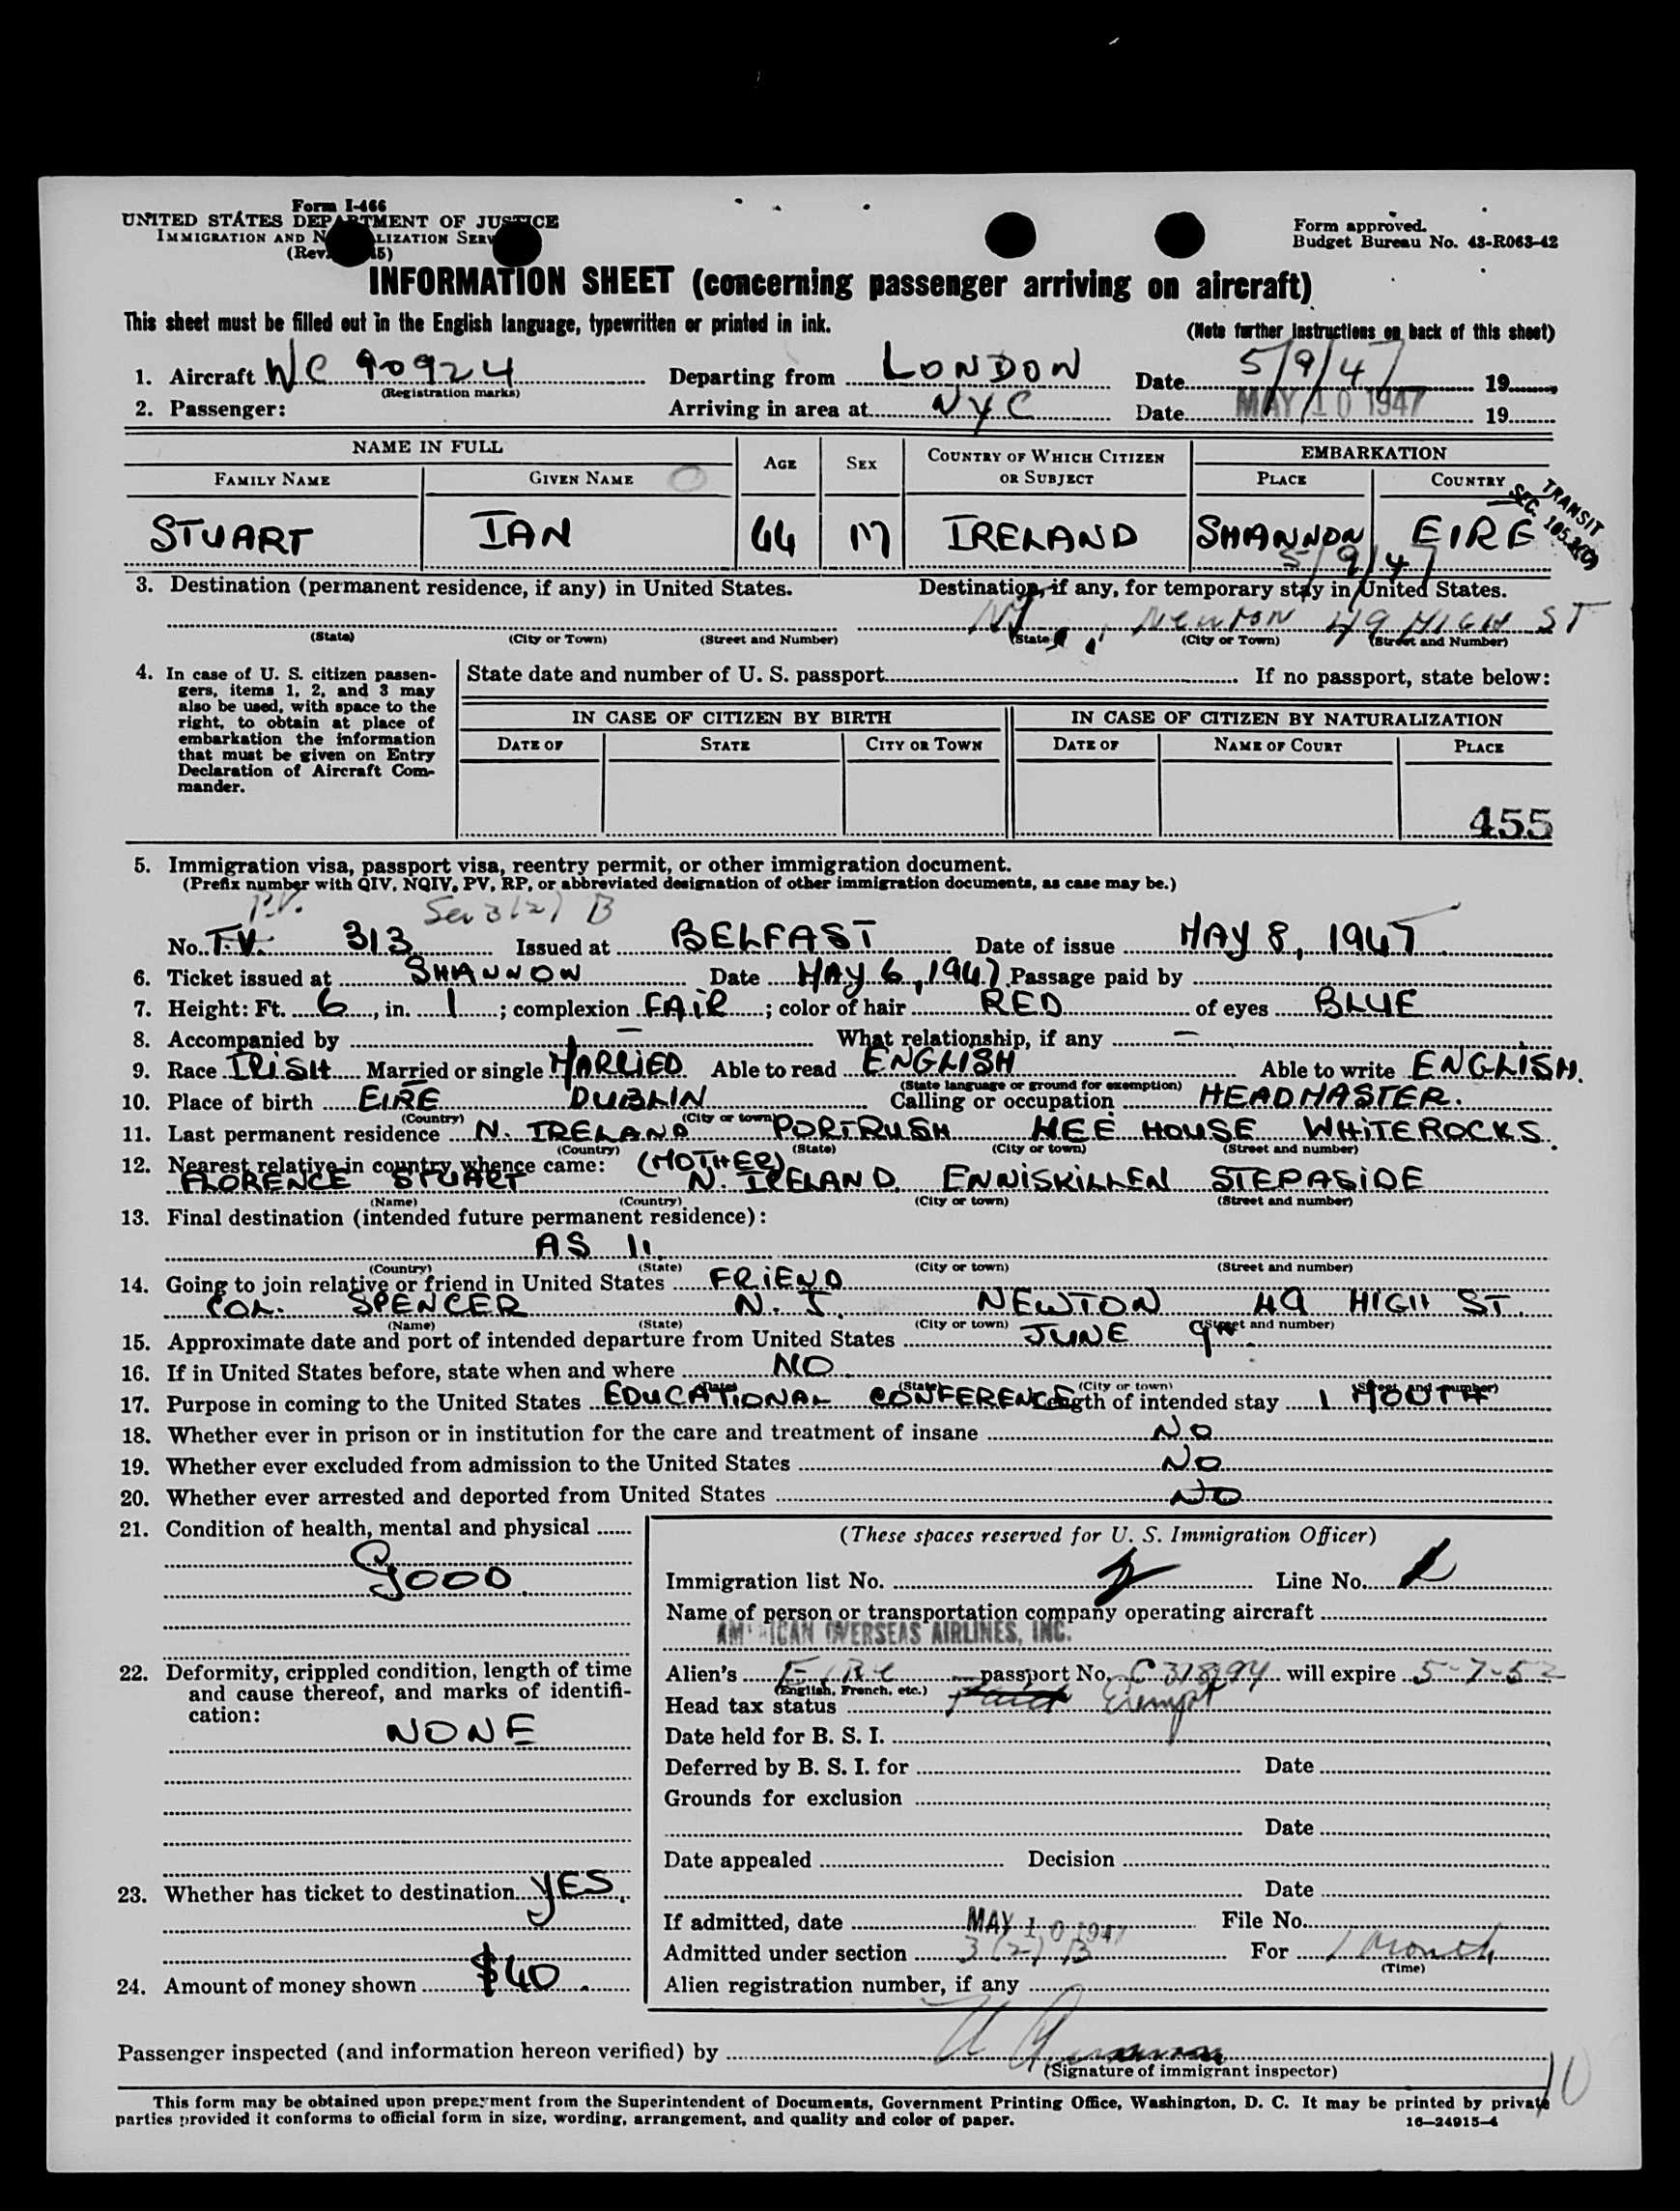 Form I-466
UNITED STATES DEPARTMENT OF JUSTICE
IMMIGRATION AND NATURALIZATION SERVICE
Form approved.
Budget Bureau No. 43-R063-42
INFORMATION SHEET (concerning passenger arriving on aircraft)
This sheet must be filled out in the English language, typewritten or printed in ink.
(Note further instructions on back of this sheet)
1. Aircraft NC 90924 Departing from LONDON Date 5/9/47 19
(Registration marks)
2. Passenger: Arriving in area at NYC Date MAY 10 1947 19
NAME IN FULL AGE SEX COUNTRY OF WHICH CITIZEN OR SUBJECT EMBARKATION
FAMILY NAME GIVEN NAME PLACE COUNTRY
TRANSIT
SEC.
STUART IAN 44 M IRELAND SHANNON EIRE
5/9/47
3. Destination (permanent residence, if any) in United States. Destination, if any, for temporary stay in United States.
NJ, Newton 49 HIGH ST
(State) (City or Town) (Street and Number) (State) (City or Town) (Street and Number)
4. In case of U. S. citizen passen-
gers, items 1, 2, and 3 may
also be used, with space to the
right, to obtain at place of
embarkation the information
that must be given on Entry
Declaration of Aircraft Com-
mander.
State date and number of U. S. passport If no passport, state below:
IN CASE OF CITIZEN BY BIRTH IN CASE OF CITIZEN BY NATURALIZATION
DATE OF STATE CITY OR TOWN DATE OF NAME OF COURT PLACE
455
5. Immigration visa, passport visa, reentry permit, or other immigration document.
(Prefix number with QIV, NQIV, PV, RP, or abbreviated designation of other immigration documents, as case may be.)
P.V. Sec 3(2) B
No. T.V. 313 Issued at BELFAST Date of issue MAY 8, 1947
6. Ticket issued at SHANNON Date MAY 6, 1947 Passage paid by
7. Height: Ft. 6, in. 1; complexion FAIR; color of hair RED of eyes BLUE
8. Accompanied by — What relationship, if any —
9. Race IRISH Married or single MARRIED Able to read ENGLISH Able to write ENGLISH.
(State language or ground for exemption)
10. Place of birth EIRE DUBLIN Calling or occupation HEADMASTER.
(Country) (City or town)
11. Last permanent residence N. IRELAND PORTRUSH HOUSE WHITEROCKS.
(Country) (State) (City or town) (Street and number)
12. Nearest relative in country whence came: (MOTHER)
FLORENCE STUART N. IRELAND ENNISKILLEN STEPASIDE
(Name) (Country) (City or town) (Street and number)
13. Final destination (intended future permanent residence):
AS 11.
(Country) (State) (City or town) (Street and number)
14. Going to join relative or friend in United States FRIEND
COL. SPENCER N. J. NEWTON 49 HIGH ST.
(Name) (State) (City or town) (Street and number)
15. Approximate date and port of intended departure from United States JUNE 9th
16. If in United States before, state when and where NO
(Date) (State) (City or town) (Street and number)
17. Purpose in coming to the United States EDUCATIONAL CONFERENCE Length of intended stay 1 MONTH
18. Whether ever in prison or in institution for the care and treatment of insane NO
19. Whether ever excluded from admission to the United States NO
20. Whether ever arrested and deported from United States NO
21. Condition of health, mental and physical
GOOD.
22. Deformity, crippled condition, length of time
and cause thereof, and marks of identifi-
cation:
NONE
23. Whether has ticket to destination YES.
24. Amount of money shown $40.
(These spaces reserved for U. S. Immigration Officer)
Immigration list No. Line No.
Name of person or transportation company operating aircraft
AMERICAN OVERSEAS AIRLINES, INC.
Alien's Eire passport No. C 318194 will expire 5-7-52
(English, French, etc.)
Head tax status Paid Exempt
Date held for B. S. I.
Deferred by B. S. I. for Date
Grounds for exclusion
Date
Date appealed Decision
Date
If admitted, date MAY 10 1947 File No.
Admitted under section 3(2) B For 1 Month
(Time)
Alien registration number, if any
Passenger inspected (and information hereon verified) by
(Signature of immigrant inspector)
10
This form may be obtained upon prepayment from the Superintendent of Documents, Government Printing Office, Washington, D. C. It may be printed by private
parties provided it conforms to official form in size, wording, arrangement, and quality and color of paper.
16—24915-4